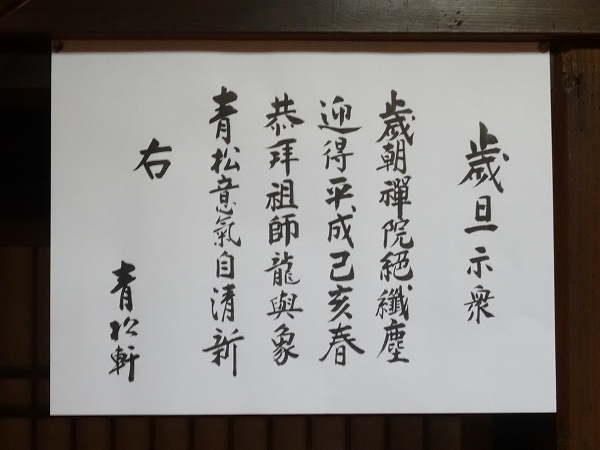 歳旦示衆
歳朝禪院絕纖塵
迎得平成己亥春
恭拜祖師龍與象
青松意氣自清新
右
青松軒